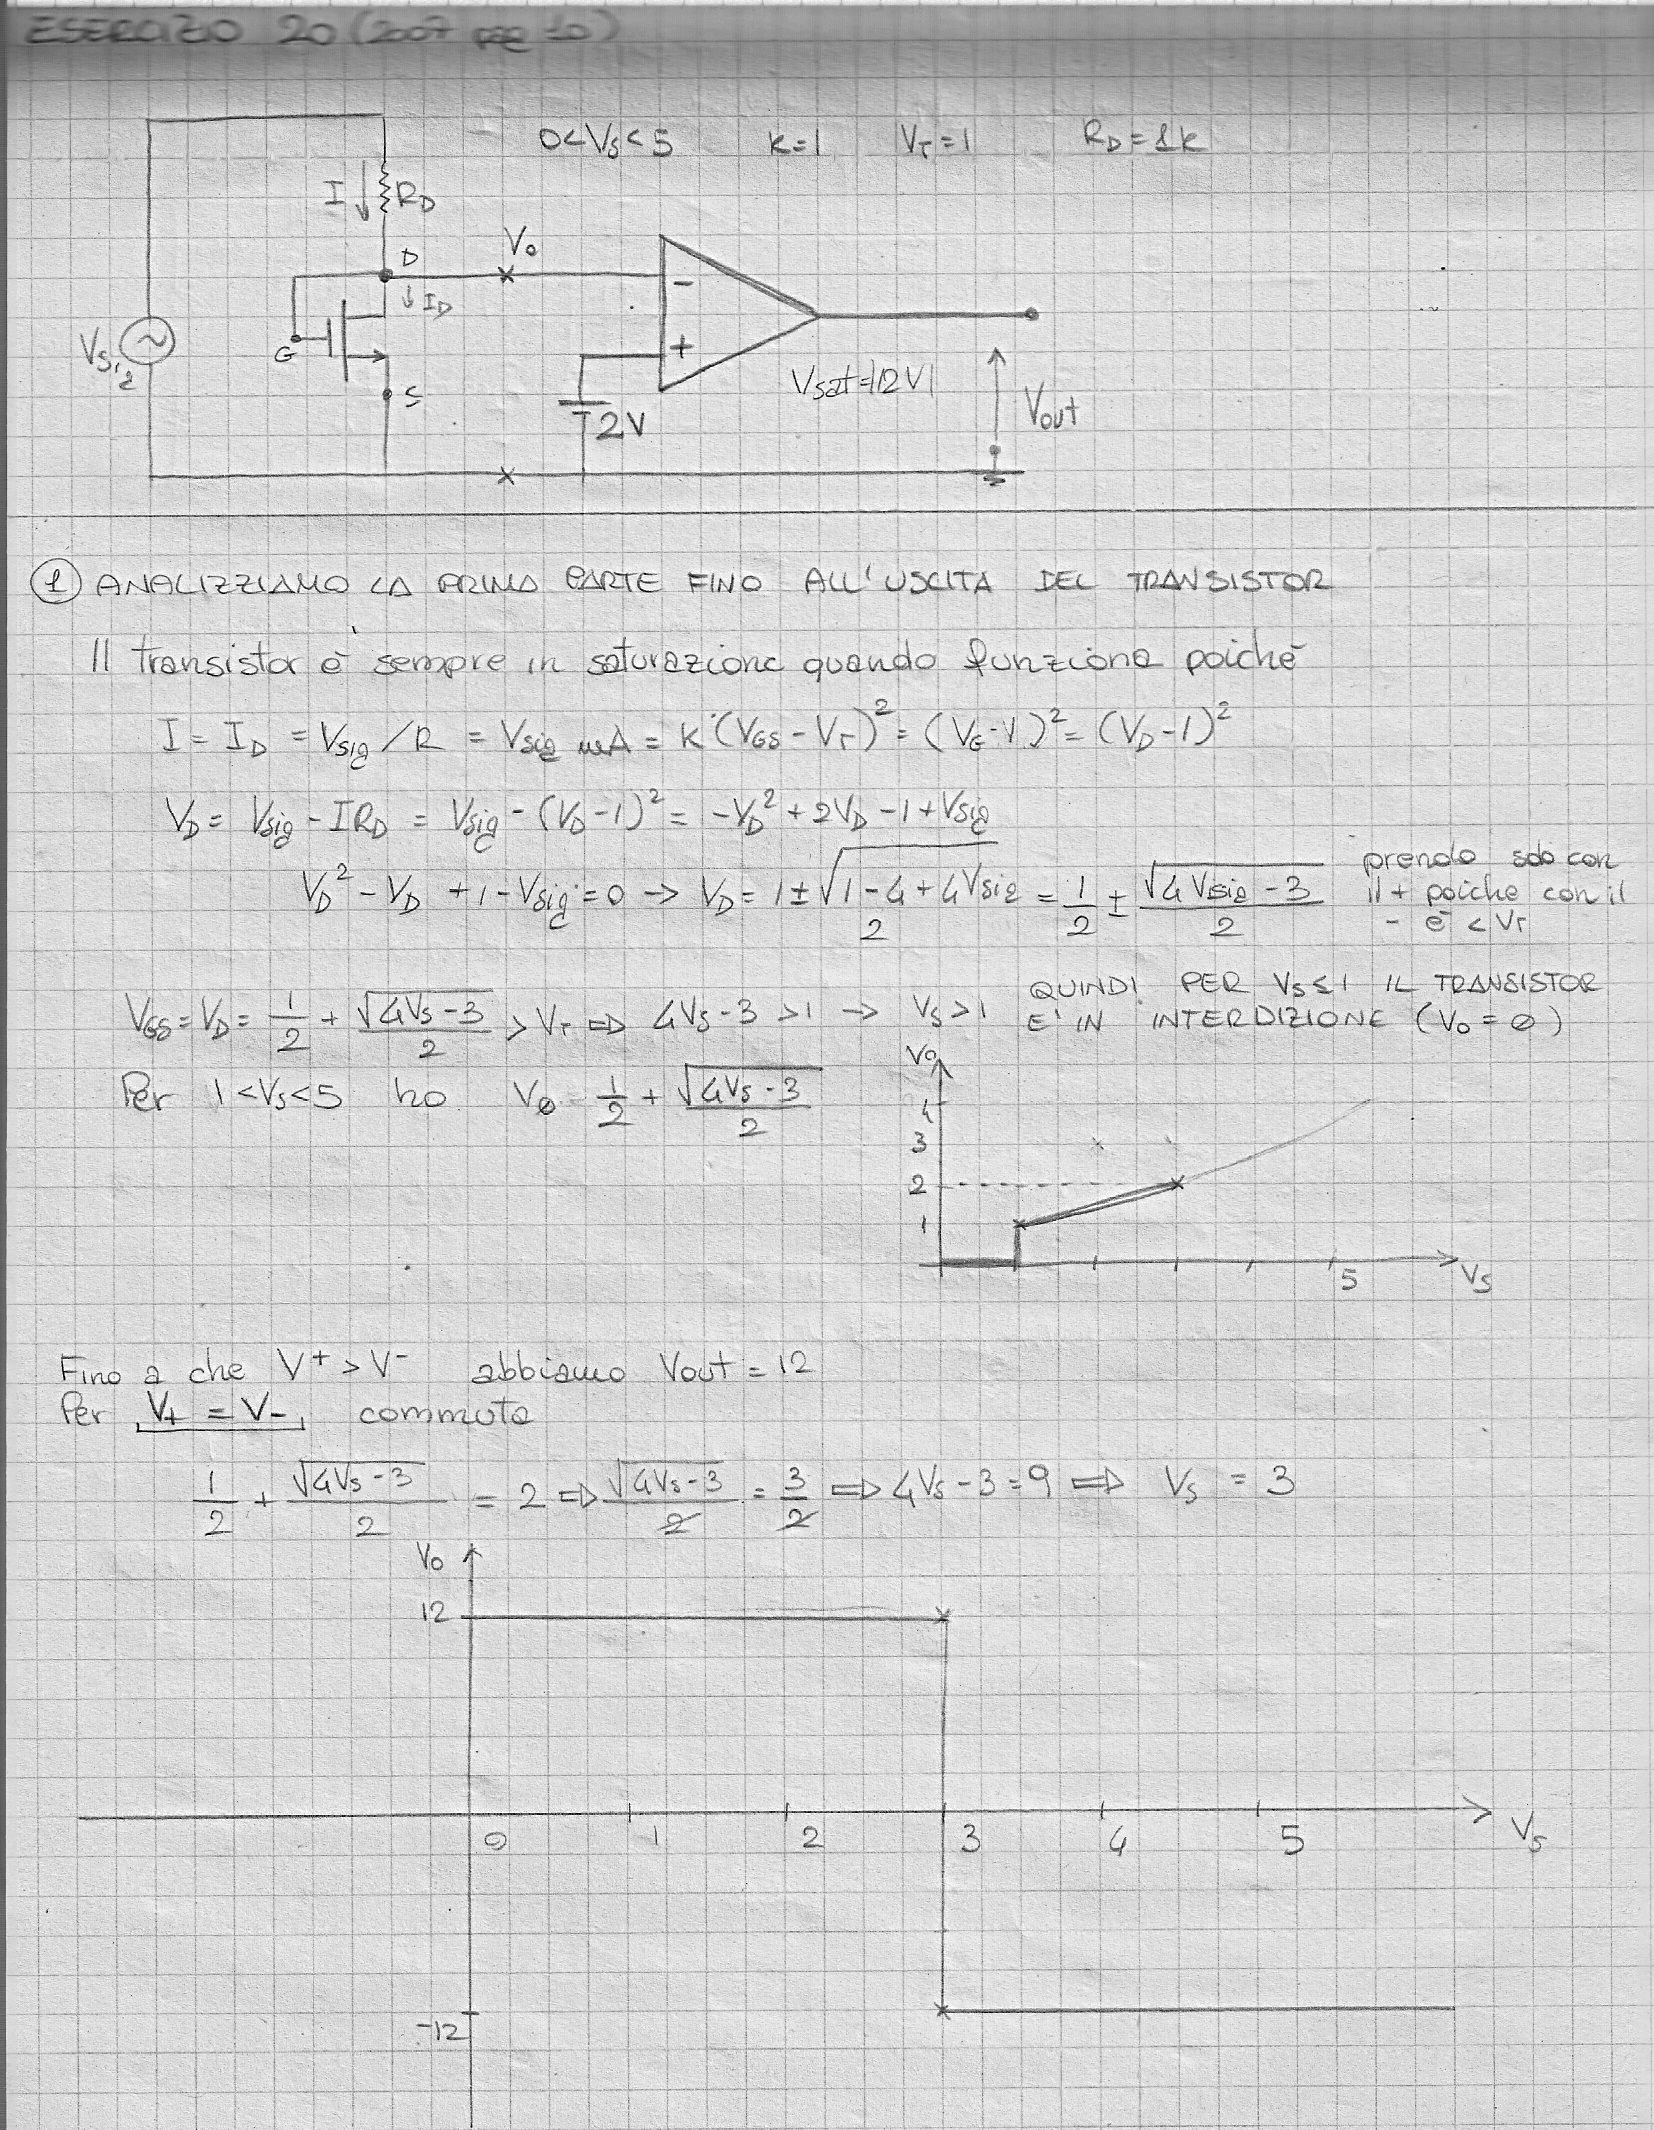 ESERCIZIO 20 (2007 pag 10)
0<Vs<5 K=1 VT=1 RD=1K
I RD
D
V0
ID
G
S
Vs
-
+
2V
Vsat=|12V|
Vout
1 ANALIZZIAMO LA PRIMA PARTE FINO ALL'USCITA DEL TRANSISTOR
Il transistor è sempre in saturazione quando funziona poiché
I = ID = Vsig/R = Vsig mA = K (VGS - VT)² = (VG - 1)² = (VD - 1)²
VD = Vsig - IRD = Vsig - (VD - 1)² = -VD² + 2VD - 1 + Vsig
VD² - VD + 1 - Vsig = 0 → VD = 1 ± √1 - 4 + 4Vsig / 2 = 1/2 ± √4Vsig - 3 / 2
prendo solo con
il + poiche con il
- è < VT
VGS = VD = 1/2 + √4Vs - 3 / 2 > VT ⇒ 4Vs - 3 > 1 → Vs > 1
QUINDI PER Vs ≤ 1 IL TRANSISTOR
E' IN INTERDIZIONE (V0 = 0)
Per 1 < Vs < 5 ho V0 = 1/2 + √4Vs - 3 / 2
V0
4
3
2
1
5 Vs
Fino a che V+ > V- abbiamo Vout = 12
Per V+ = V- commuta
1/2 + √4Vs - 3 / 2 = 2 ⇒ √4Vs - 3 / 2 = 3/2 ⇒ 4Vs - 3 = 9 ⇒ Vs = 3
V0
12
0 1 2 3 4 5 Vs
-12